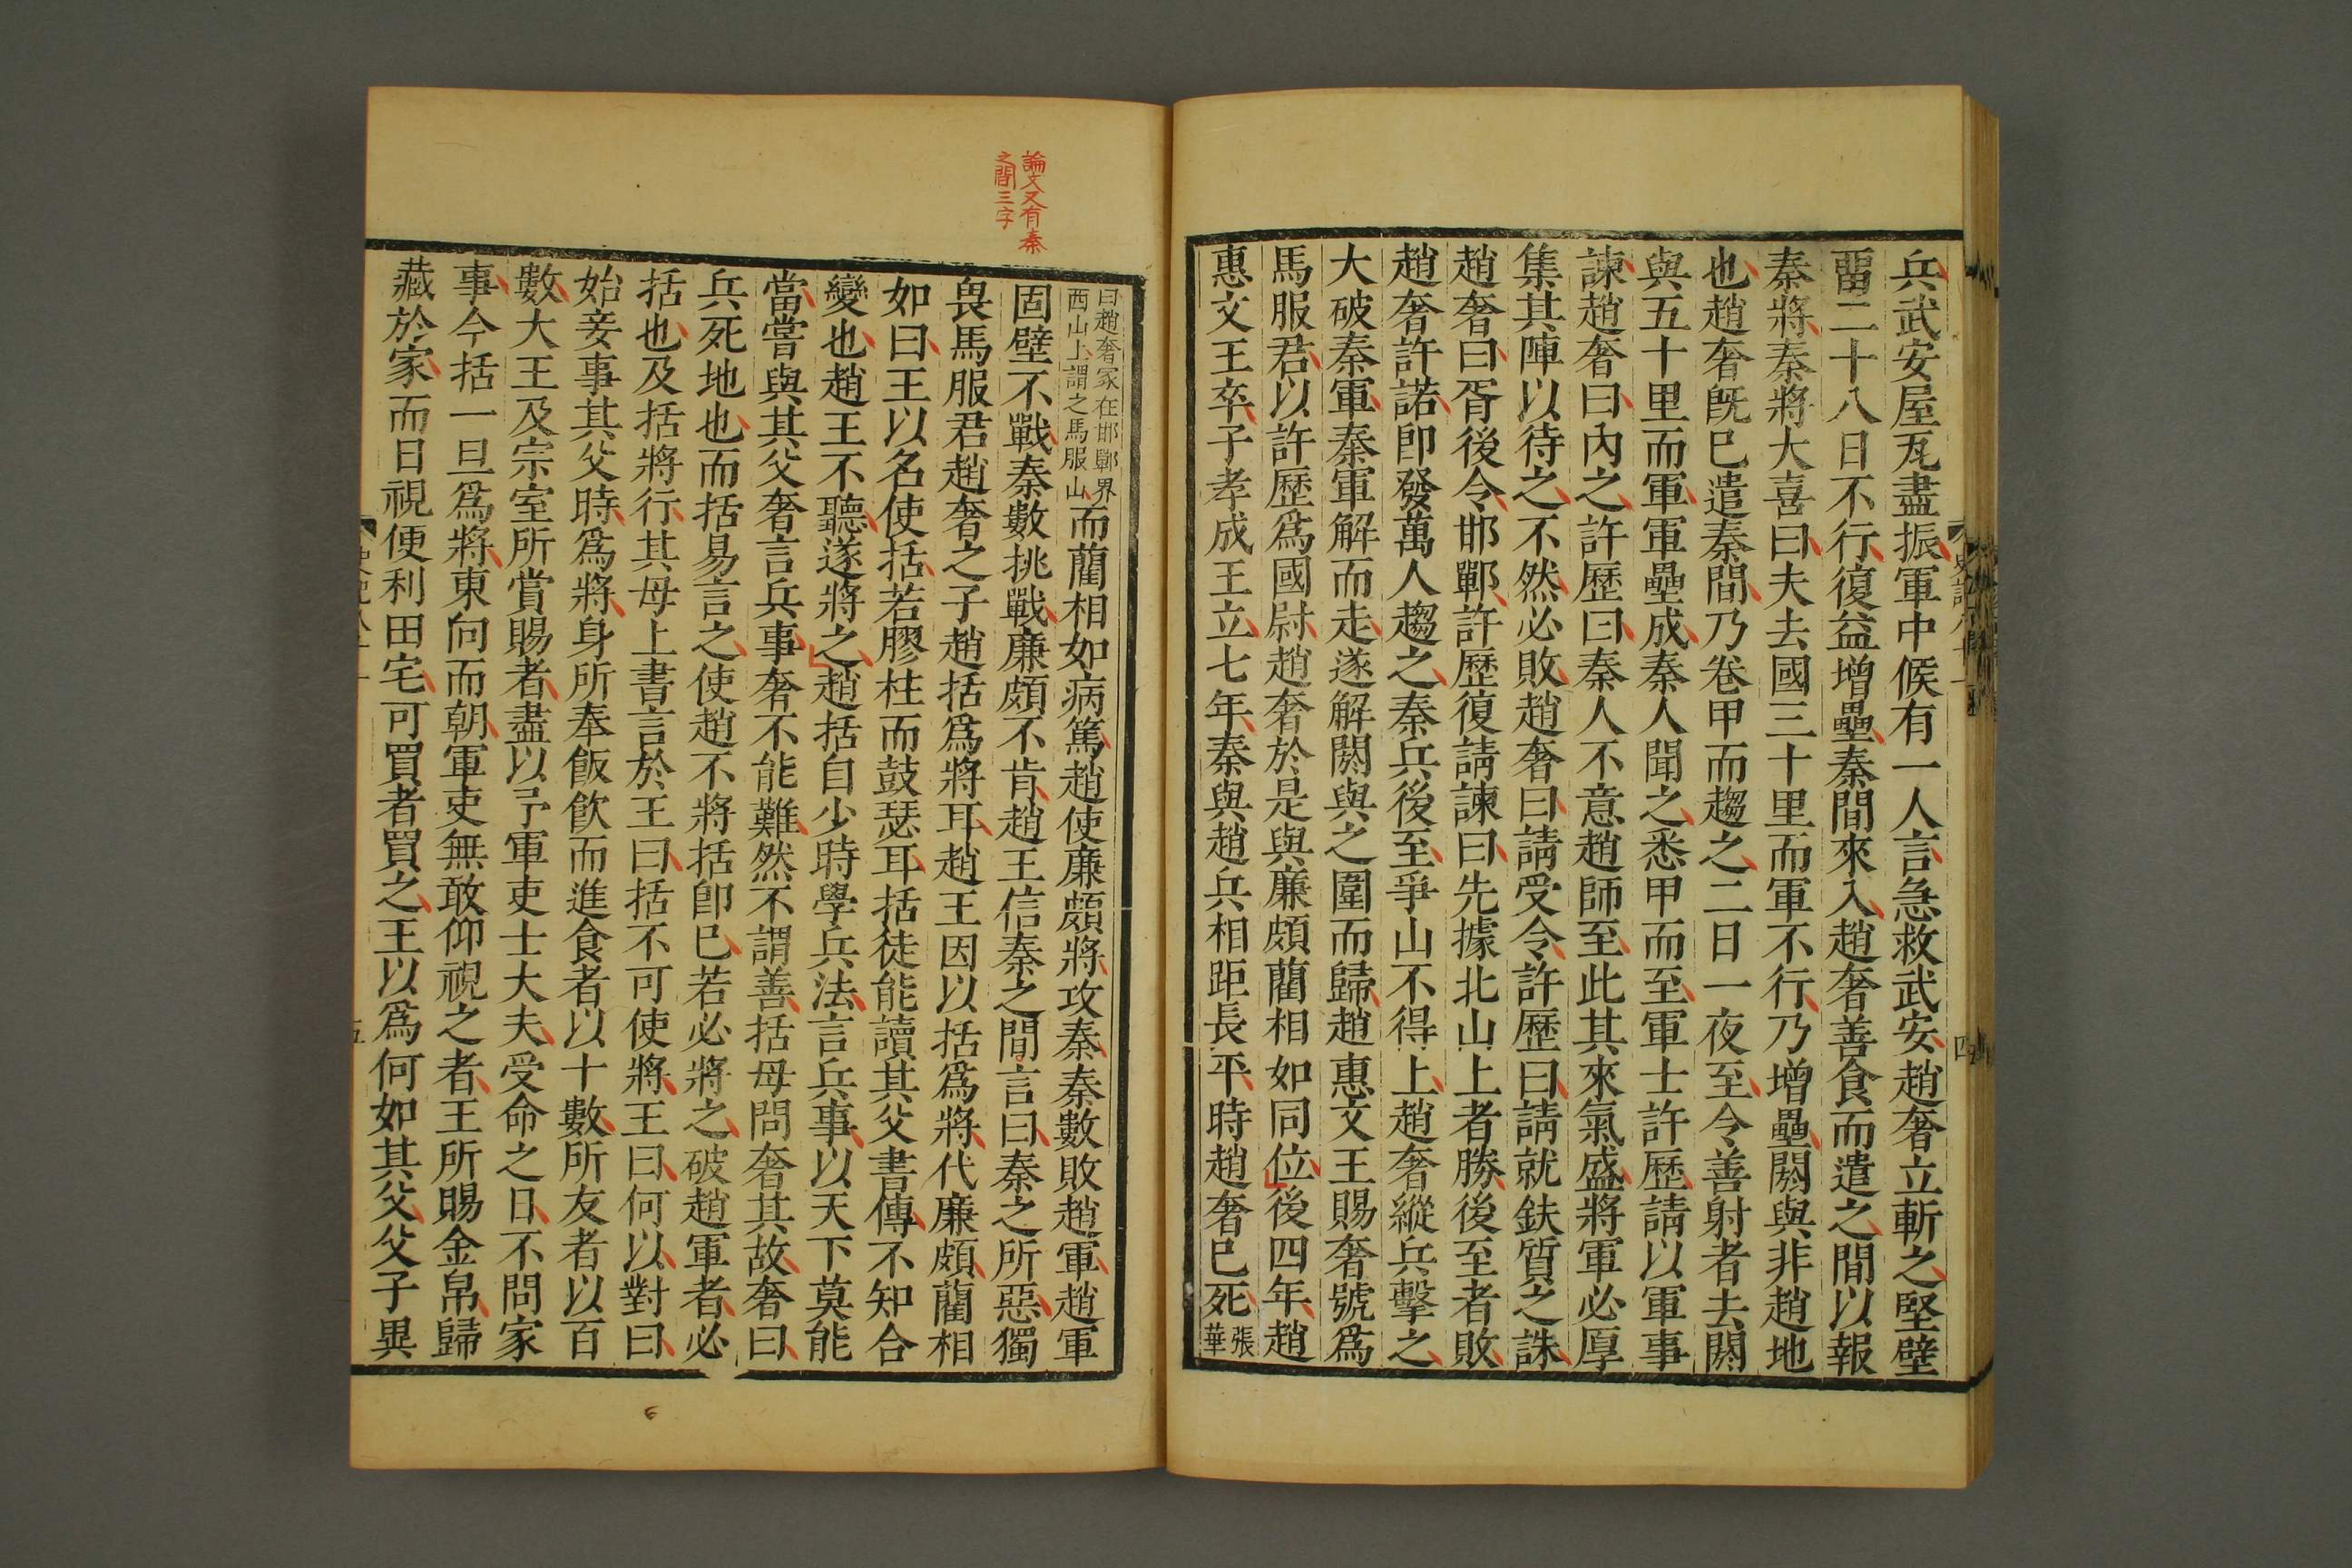 兵武安屋瓦盡振軍中候有一人言急救武安趙奢立斬之堅壁
畱二十八日不行復益增壘秦間來入趙奢善食而遣之間以報
秦將秦將大喜曰夫去國三十里而軍不行乃增壘閼與非趙地
也趙奢旣已遣秦間乃卷甲而趨之二日一夜至令善射者去閼
與五十里而軍軍壘成秦人聞之悉甲而至軍士許歷請以軍事
諫趙奢曰內之許歷曰秦人不意趙師至此其來氣盛將軍必厚
集其陣以待之不然必敗趙奢曰請受令許歷曰請就鈇質之誅
趙奢曰胥後令邯鄲許歷復請諫曰先據北山上者勝後至者敗
趙奢許諾卽發萬人趨之秦兵後至爭山不得上趙奢縱兵擊之
大破秦軍秦軍解而走遂解閼與之圍而歸趙惠文王賜奢號爲
馬服君以許歷爲國尉趙奢於是與廉頗藺相如同位後四年趙
惠文王卒子孝成王立七年秦與趙兵相距長平時趙奢已死張
華
論文又有秦
之間三字
曰趙奢冢在邯鄲界
西山上謂之馬服山
而藺相如病篤趙使廉頗將攻秦秦數敗趙軍趙軍
固壁不戰秦數挑戰廉頗不肯趙王信秦之間言曰秦之所惡獨
畏馬服君趙奢之子趙括爲將耳趙王因以括爲將代廉頗藺相
如曰王以名使括若膠柱而鼓瑟耳括徒能讀其父書傳不知合
變也趙王不聽遂將之趙括自少時學兵法言兵事以天下莫能
當嘗與其父奢言兵事奢不能難然不謂善括母問奢其故奢曰
兵死地也而括易言之使趙不將括卽已若必將之破趙軍者必
括也及括將行其母上書言於王曰括不可使將王曰何以對曰
始妾事其父時爲將身所奉飯飮而進食者以十數所友者以百
數大王及宗室所賞賜者盡以予軍吏士大夫受命之日不問家
事今括一旦爲將東向而朝軍吏無敢仰視之者王所賜金帛歸
藏於家而日視便利田宅可買者買之王以爲何如其父父子異
五